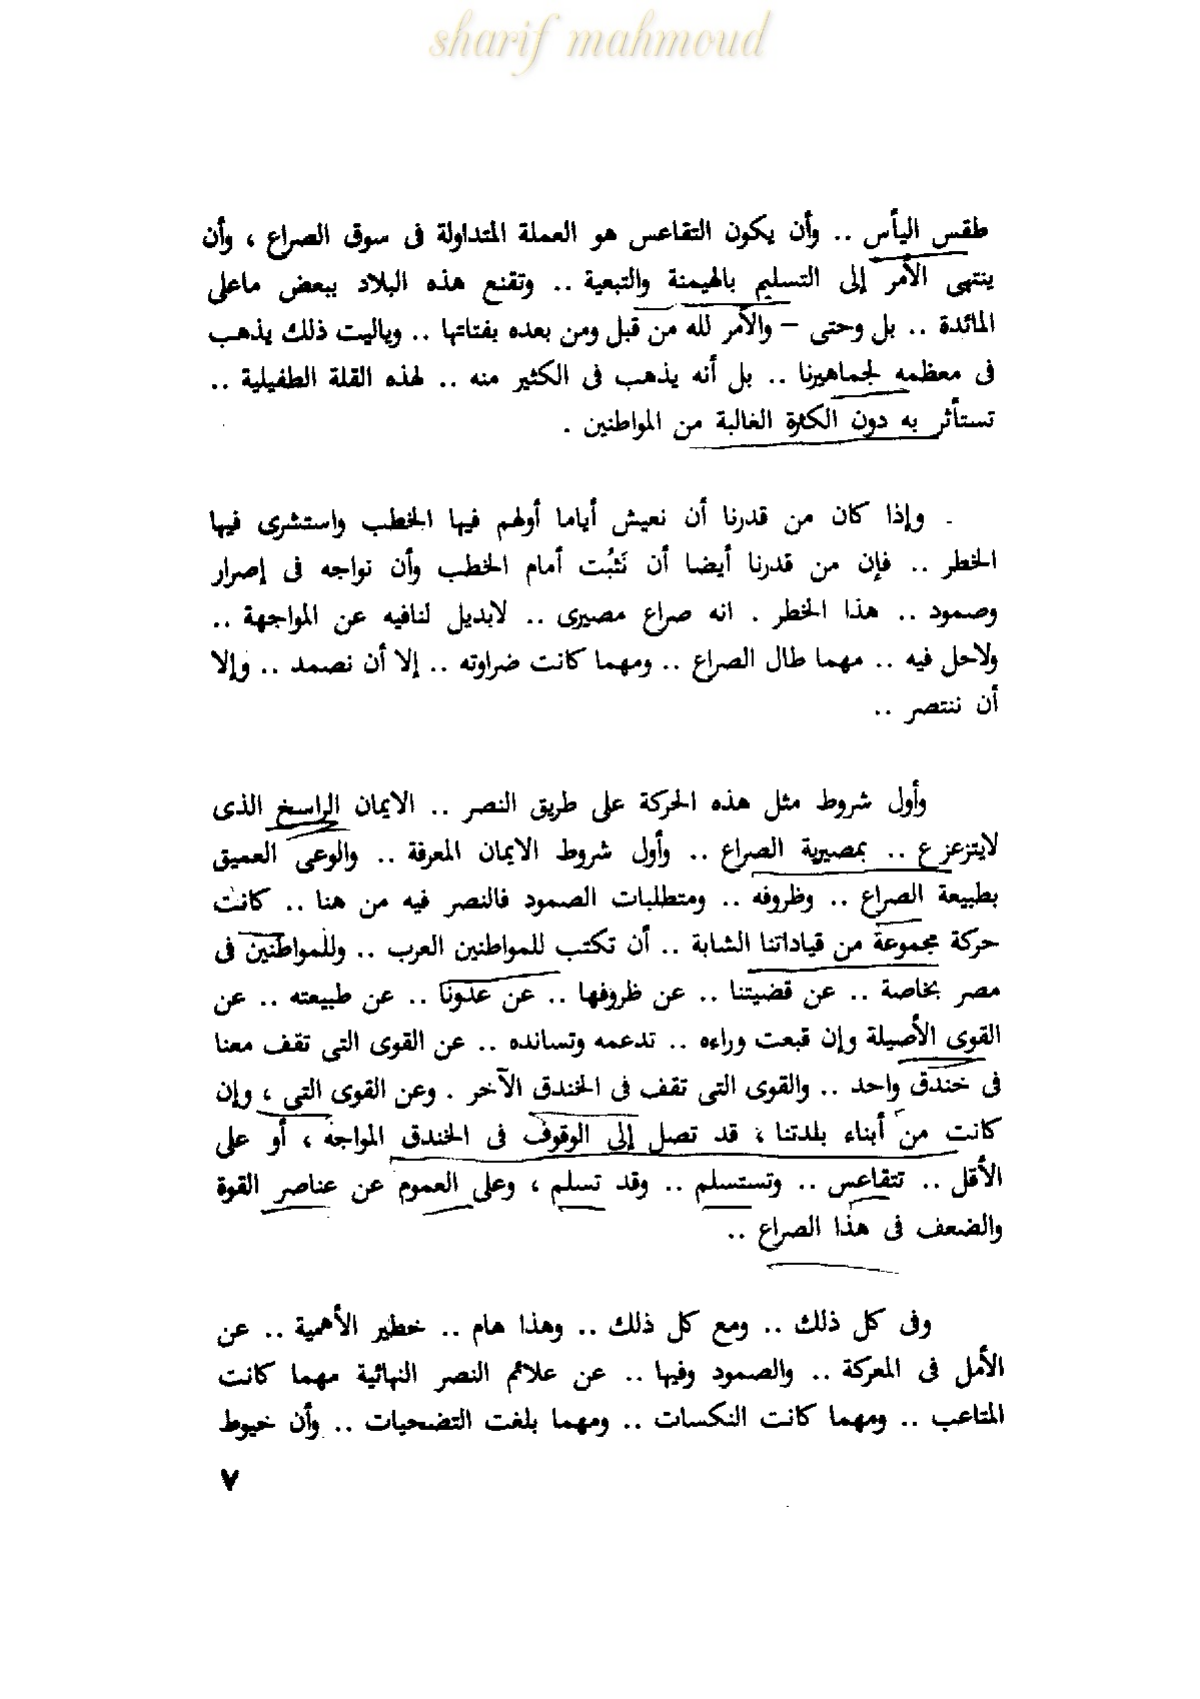 sharif mahmoud
طقس اليأس .. وأن يكون التقاعس هو العملة المتداولة فى سوق الصراع ، وأن
ينتهى الأمر إلى التسليم بالهيمنة والتبعية .. وتقنع هذه البلاد ببعض ماعلى
المائدة .. بل وحتى – والأمر لله من قبل ومن بعده بفتاتها .. وياليت ذلك يذهب
فى معظمه لجماهيرنا .. بل أنه يذهب فى الكثير منه .. لهذه القلة الطفيلية ..
تستأثر به دون الكثرة الغالبة من المواطنين .
وإذا كان من قدرنا أن نعيش أياما أولهم فيها الخطب واستشرى فيها
الخطر .. فإن من قدرنا أيضا أن نَثبُت أمام الخطب وأن نواجه فى إصرار
وصمود .. هذا الخطر . انه صراع مصيرى .. لابديل لنافيه عن المواجهة ..
ولاحل فيه .. مهما طال الصراع .. ومهما كانت ضراوته .. إلا أن نصمد .. وإلا
أن ننتصر ..
وأول شروط مثل هذه الحركة على طريق النصر .. الايمان الراسخ الذى
لايتزعزع .. بمصيرية الصراع .. وأول شروط الايمان المعرفة .. والوعى العميق
بطبيعة الصراع .. وظروفه .. ومتطلبات الصمود فالنصر فيه من هنا .. كانت
حركة مجموعة من قياداتنا الشابة .. أن تكتب للمواطنين العرب .. وللمواطنين فى
مصر بخاصة .. عن قضيتنا .. عن ظروفها .. عن عدونا .. عن طبيعته .. عن
القوى الأصيلة وإن قبعت وراءه .. تدعمه وتسانده .. عن القوى التى تقف معنا
فى خندق واحد .. والقوى التى تقف فى الخندق الآخر . وعن القوى التى ، وإن
كانت من أبناء بلدتنا ، قد تصل إلى الوقوف فى الخندق المواجه ، أو على
الأقل .. تتقاعس .. وتستسلم .. وقد تسلم ، وعلى العموم عن عناصر القوة
والضعف فى هذا الصراع ..
وفى كل ذلك .. ومع كل ذلك .. وهذا هام .. خطير الأهمية .. عن
الأمل فى المعركة .. والصمود وفيها .. عن علائم النصر النهائية مهما كانت
المتاعب .. ومهما كانت النكسات .. ومهما بلغت التضحيات .. وأن خيوط
٧